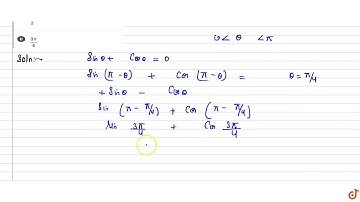 2
3π/4
0 < θ < π
Soln:→ Sinθ + Cosθ = 0
Sin (π - θ) + Cos (π - θ) = θ = π/4
+ Sinθ - Cosθ
Sin (π - π/4) + Cos (π - π/4)
Sin 3π/4 + Cos 3π/4